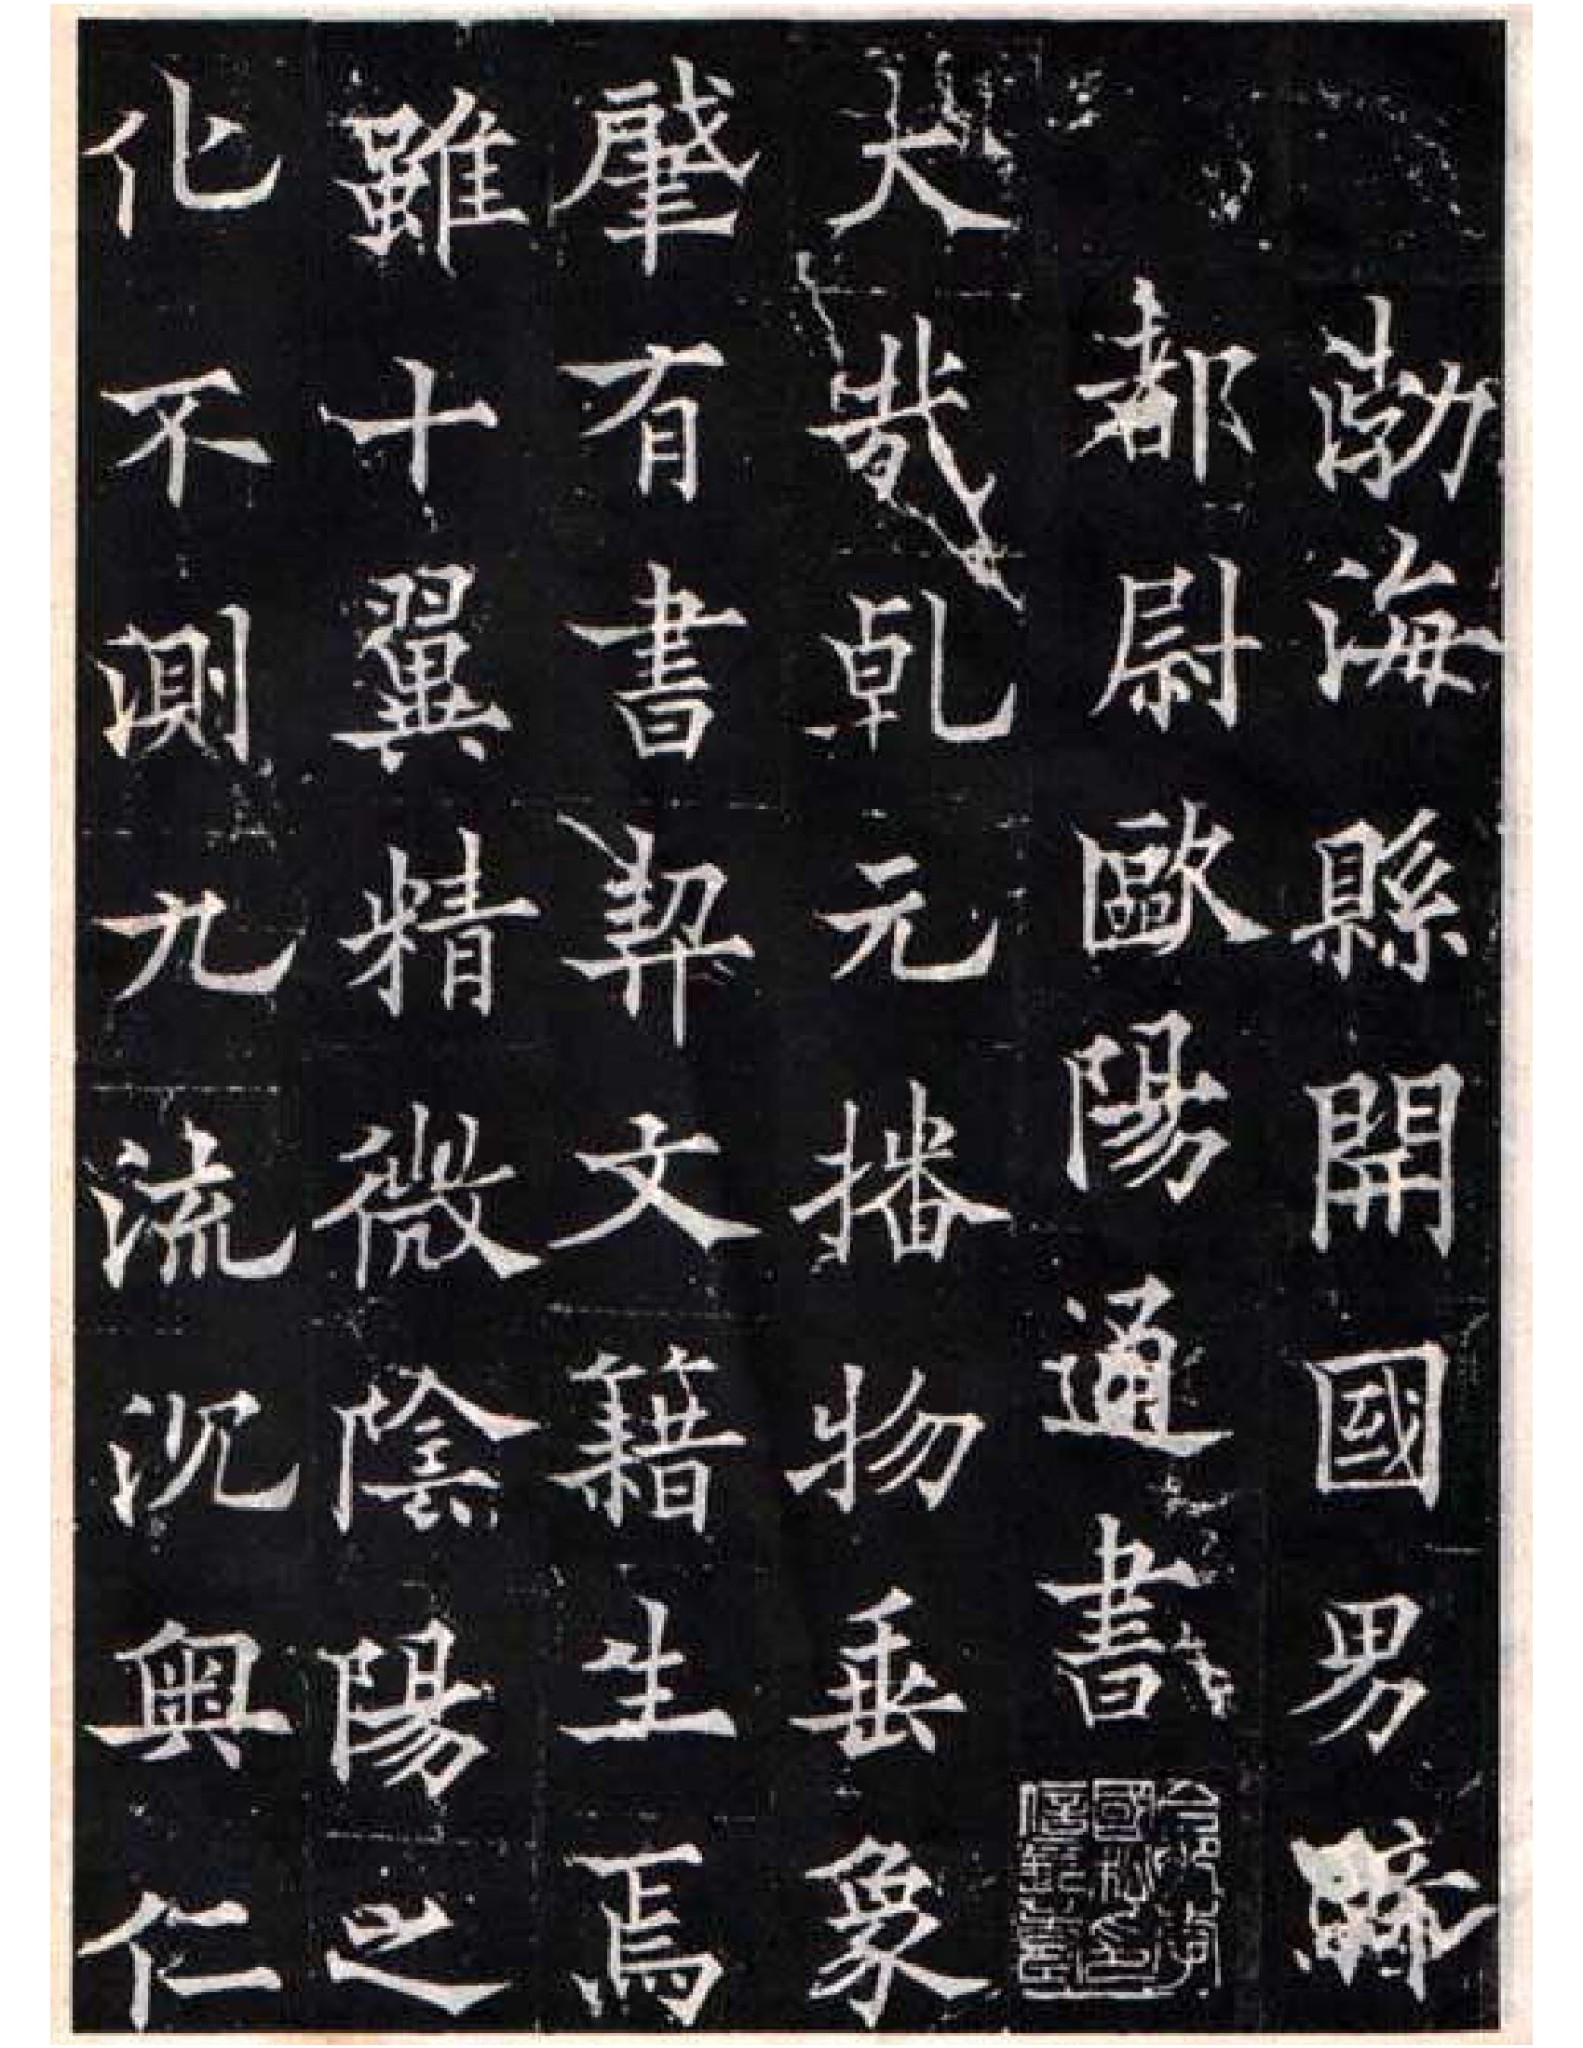 勃海縣開國男騎
都尉歐陽通書
大哉乹元播物垂象
肇有書契文籍生焉
雖十翼精微陰陽之
化不測九流沉奥仁